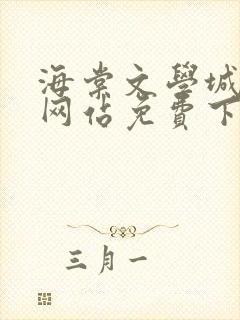 海棠文學城
网佔免費下
三月一